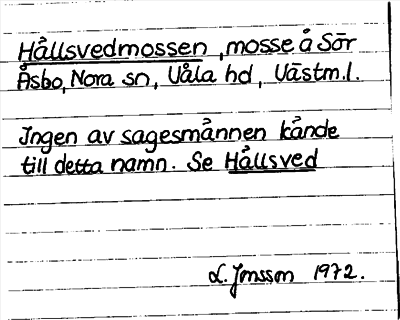 Hållsvedmossen, mosse å Sör
Åsbo, Nora sn, Våla hd, Västm.l.
Ingen av sagesmännen kände
till detta namn. Se Hållsved
L. Jonsson 1972.